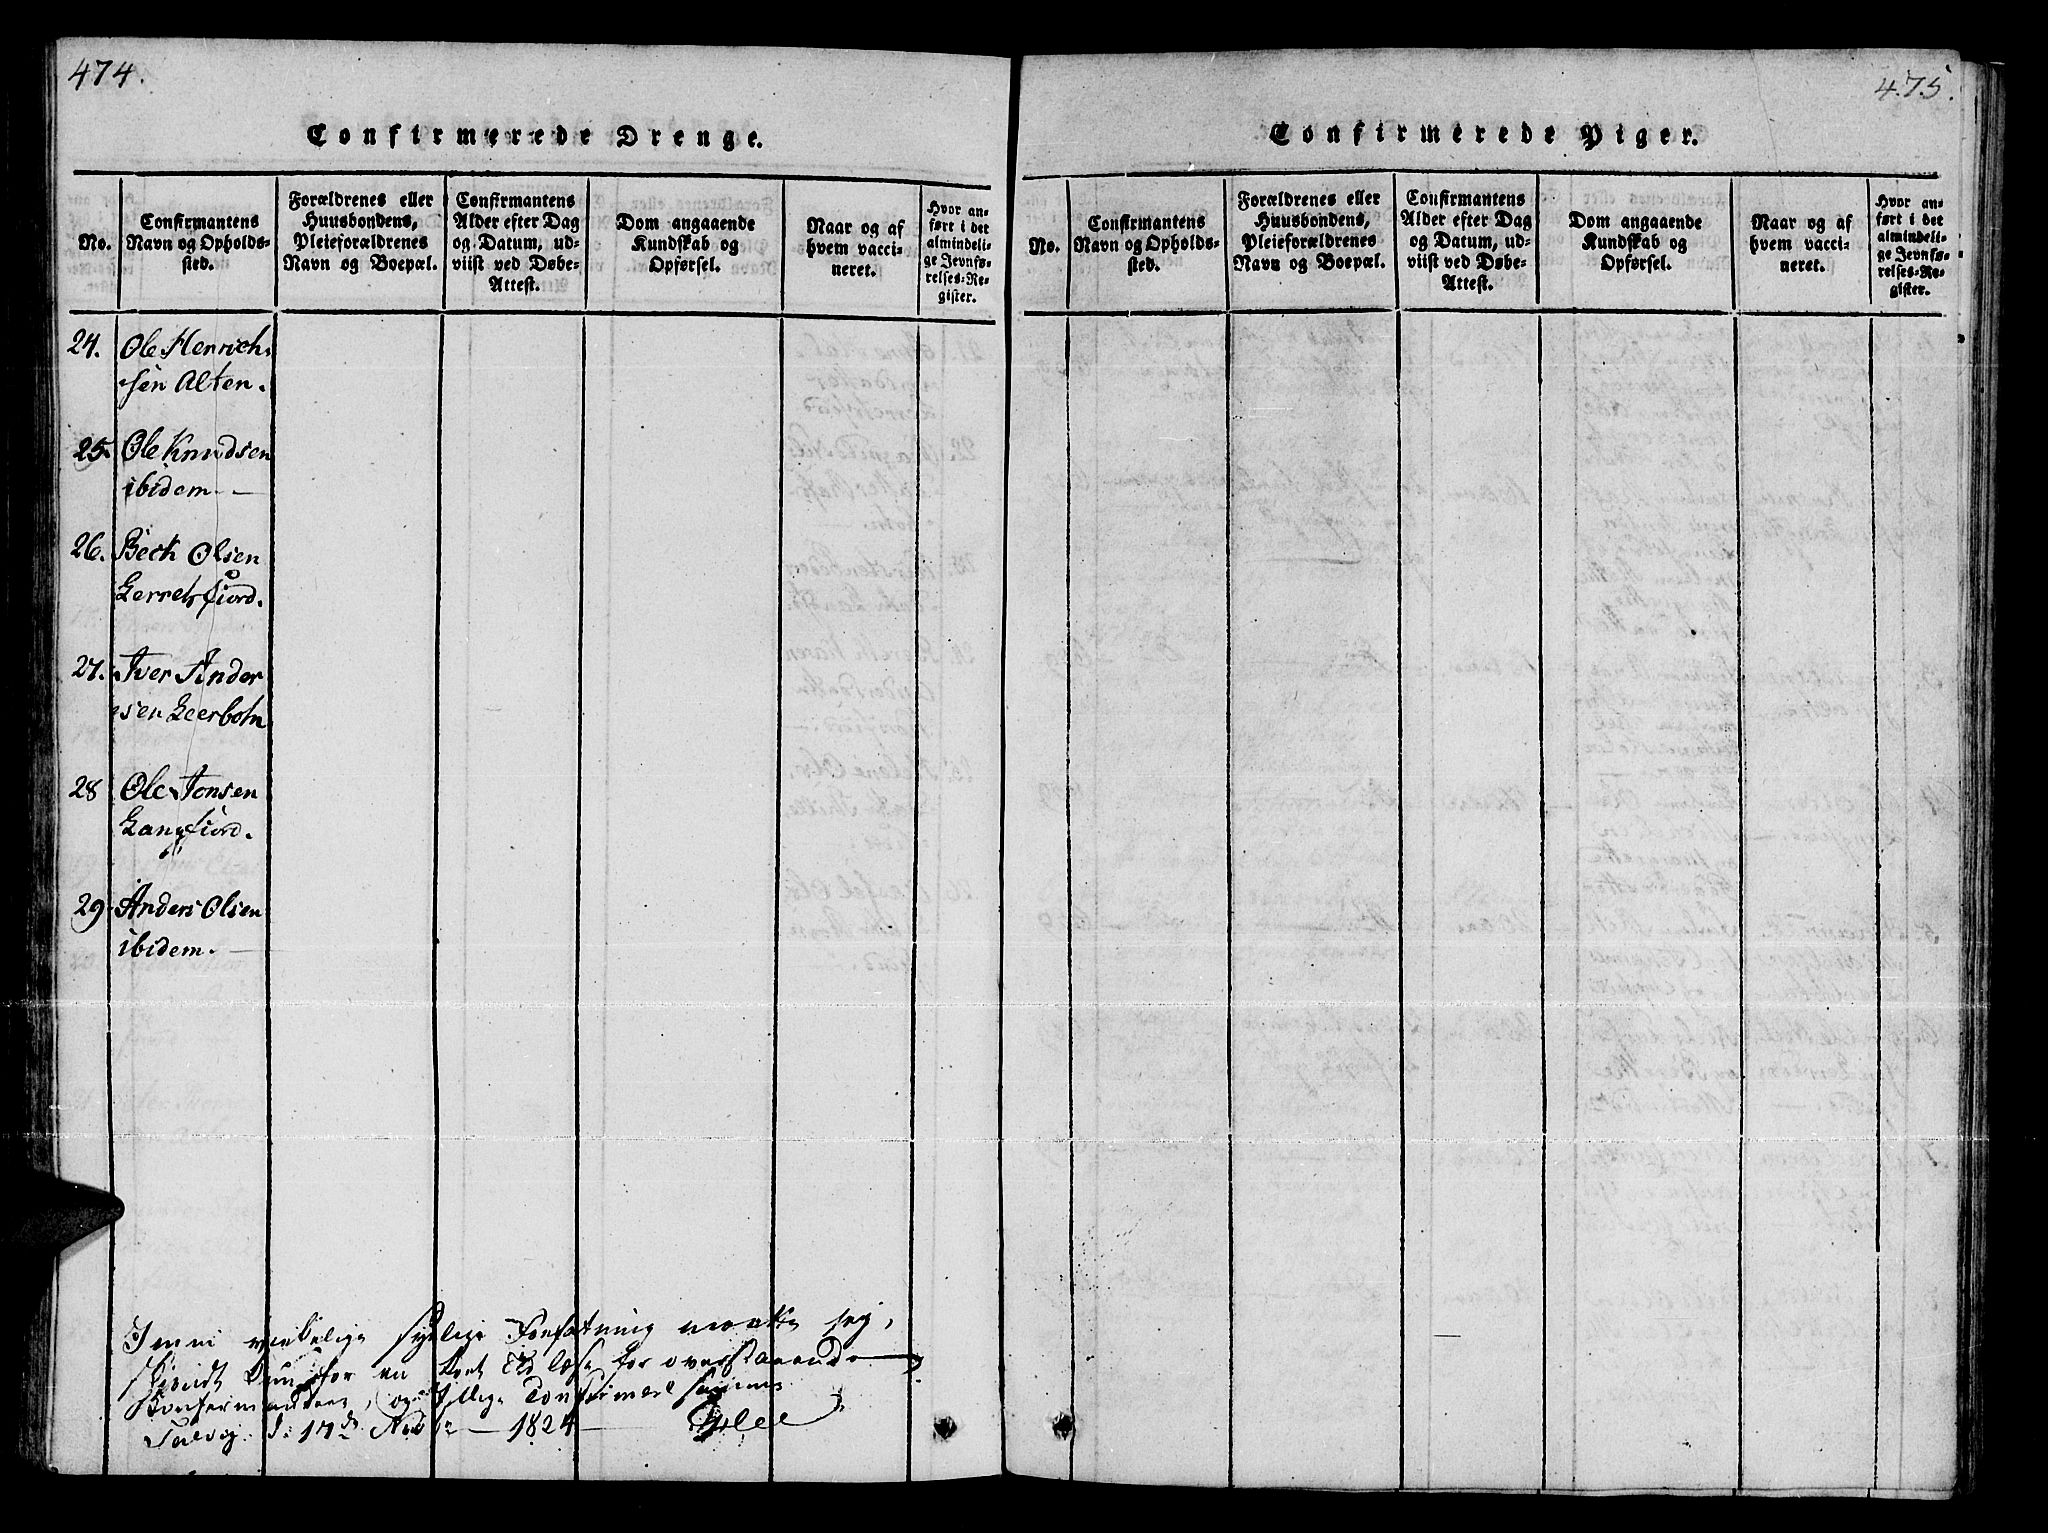 474.
Confirmerede Drenge.
No.
Confirmantens
Navn og Opholds-
sted.
Forældrenes eller
Huusbondens,
Pleieforældrenes
Navn og Boepæl.
Confirmantens
Alder efter Dag
og Datum, ud-
viist ved Døbe-
Attest.
Dom angaaende
Kundskab og
Opførsel.
Naar og af
hvem vacci-
neret.
Hvor an-
ført i det
almindeli-
ge Jevnfø-
relses-Re-
gister.
24. Ole Henrich
sen Alten.
25. Ole Knudsen
ibidem. —
26. Beck Olsen
Lerretsfiord.
27. Iver Ander
sen Leerbotn
28 Ole Jonsen
Langfiord.
29. Anders Olsen
ibidem. —
I min
Forfatning maatte jeg,
for overstaaende
og
Talvig d: 17de 1824
475.
Confirmerede Piger.
No.
Confirmantens
Navn og Opholds-
sted.
Forældrenes eller
Huusbondens,
Pleieforældrenes
Navn og Boepæl.
Confirmantens
Alder efter Dag
og Datum, ud-
viist ved Døbe-
Attest.
Dom angaaende
Kundskab og
Opførsel.
Naar og af
hvem vacci-
neret.
Hvor an-
ført i det
almindeli-
ge Jevnfø-
relses-Re-
gister.